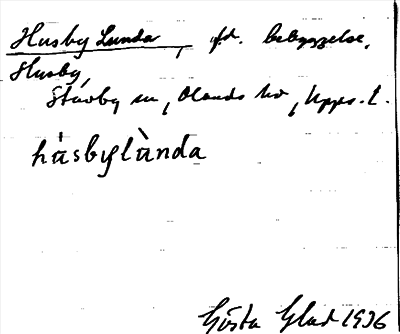 Husby Lunda, f.d. bebyggelse,
Husby,
Stavby sn, Olands hd, Upps. l.
hásbylànda
Gösta Glad 1936